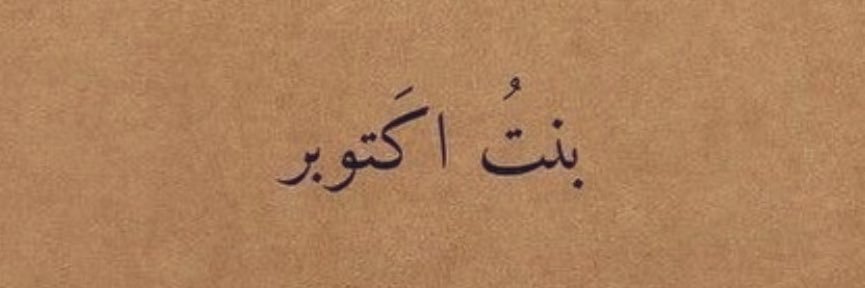 بنتُ اكَتوبر